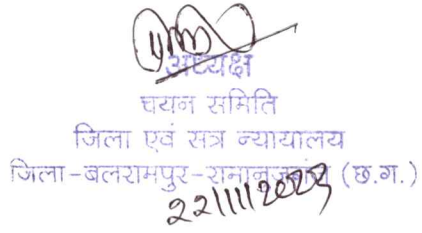 अध्यक्ष
चयन समिति
जिला एवं सत्र न्यायालय
जिला-बलरामपुर-रामानुजगंज (छ.ग.)
22/11/2023